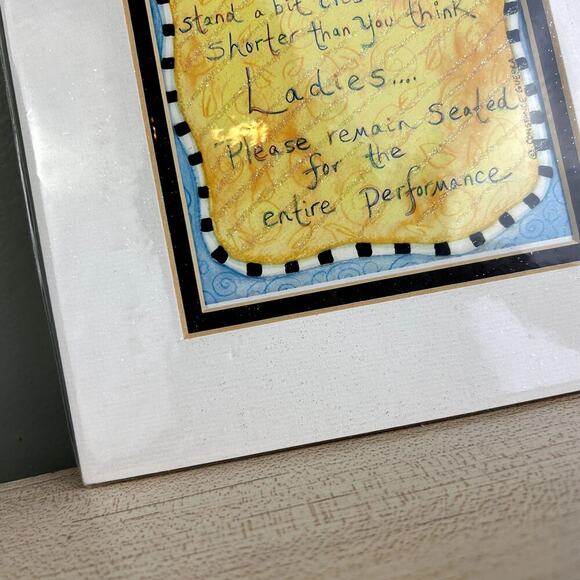 stand a bit
shorter than you think.
Ladies....
Please remain Seated
for the
entire performance